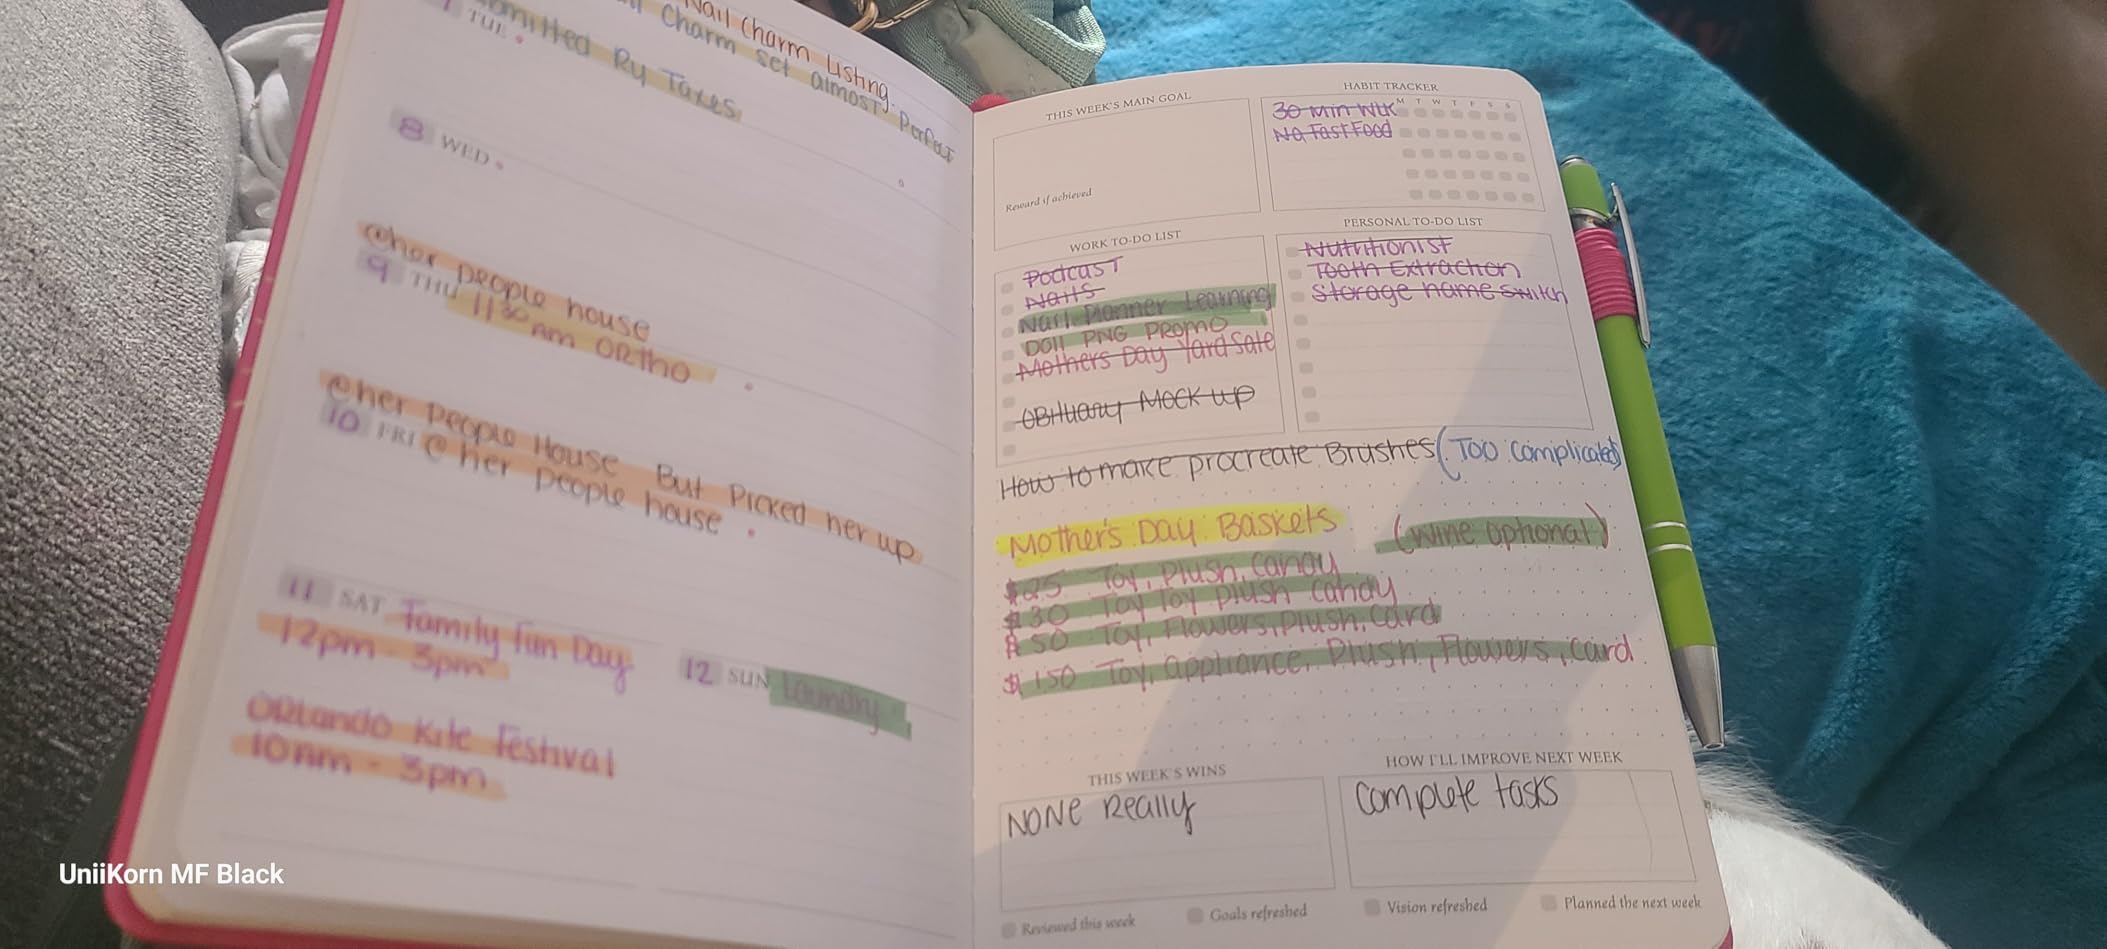 Nail Charm Listing.
Charm Set almost perfect
7 TUE
Submitted Ry Taxes
8 WED
@her people house
9 THU 11:30am ORtho
@her people House But Picked her up
10 FRI @ her people house
11 SAT Family Fun Day
12pm - 3pm
12 SUN Laundry
ORlando Kite Festival
10am - 3pm
THIS WEEK'S MAIN GOAL
Reward if achieved
HABIT TRACKER
M T W T F S S
30 Min Wlk
No Fast Food
WORK TO-DO LIST
Podcast
Nails
Nail Planner Learning
Doll PNG Promo
Mothers Day Yard Sale
OBituary Mock up
PERSONAL TO-DO LIST
Nutritionist
Tooth Extraction
Storage name switch
How to make procreate Brushes (Too Complicated)
Mother's Day Baskets (wine optional)
$25 Toy, Plush, Candy
$30 Toy Toy plush Candy
$50 Toy, Flowers, Plush, Card
$150 Toy, appliance, Plush, Flowers, Card
THIS WEEK'S WINS
NONE Really
HOW I'LL IMPROVE NEXT WEEK
Complete tasks
Reviewed this week
Goals refreshed
Vision refreshed
Planned the next week
UniiKorn MF Black